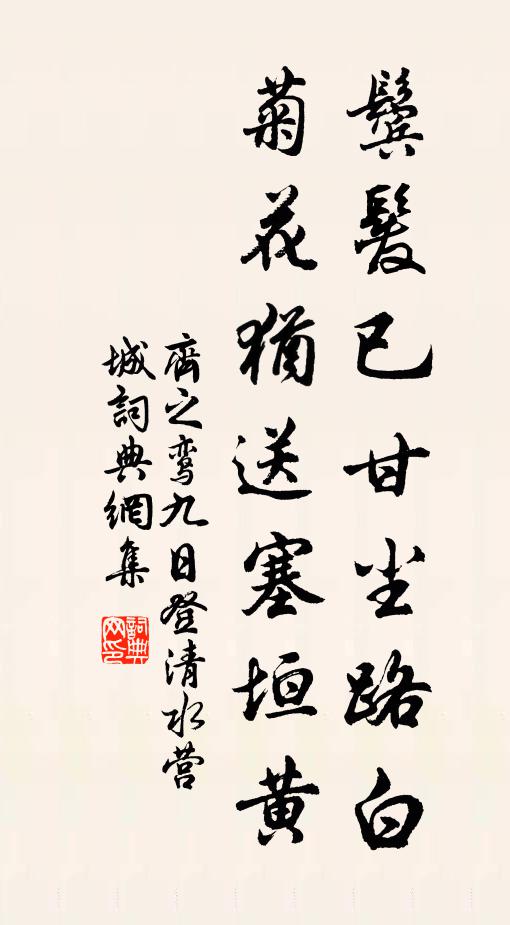 鬓髮已甘尘路白
菊花猶送塞垣黄
齊之鸾九日登清水营
城詞典網集
詞典网印